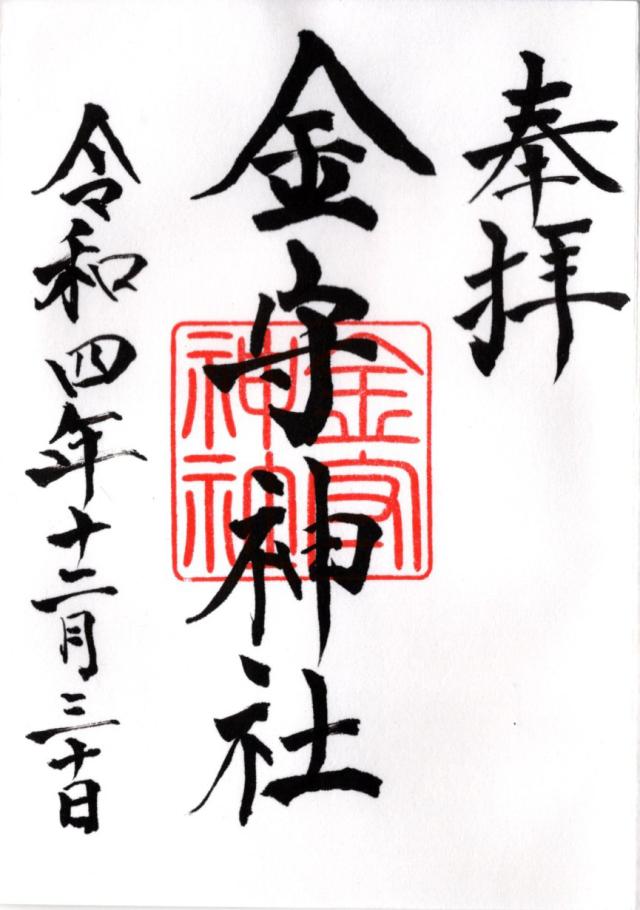 奉拝
金守神社
金守
神社
令和四年十二月三十日